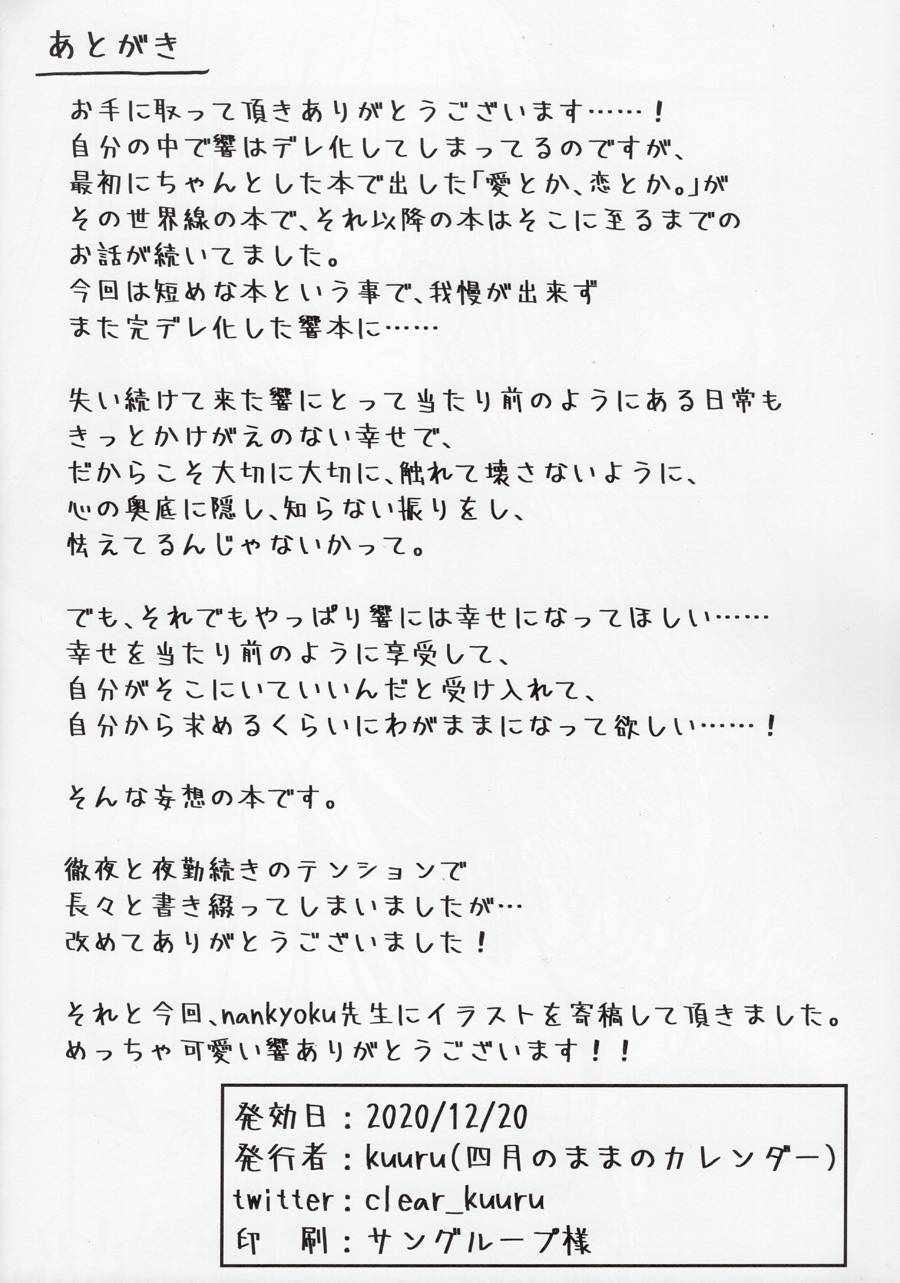 あとがき
お手に取って頂きありがとうございます……！
自分の中で響はデレ化してしまってるのですが、
最初にちゃんとした本で出した「愛とか、恋とか。」が
その世界線の本で、それ以降の本はそこに至るまでの
お話が続いてました。
今回は短めな本という事で、我慢が出来ず
また完デレ化した響本に……
失い続けて来た響にとって当たり前のようにある日常も
きっとかけがえのない幸せで、
だからこそ大切に大切に、触れて壊さないように、
心の奥底に隠し、知らない振りをし、
怯えてるんじゃないかって。
でも、それでもやっぱり響には幸せになってほしい……
幸せを当たり前のように享受して、
自分がそこにいていいんだと受け入れて、
自分から求めるくらいにわがままになって欲しい……！
そんな妄想の本です。
徹夜と夜勤続きのテンションで
長々と書き綴ってしまいましたが…
改めてありがとうございました！
それと今回、nankyoku先生にイラストを寄稿して頂きました。
めっちゃ可愛い響ありがとうございます！！
発効日：2020/12/20
発行者：kuuru(四月のままのカレンダー)
twitter：clear_kuuru
印　刷：サングループ様